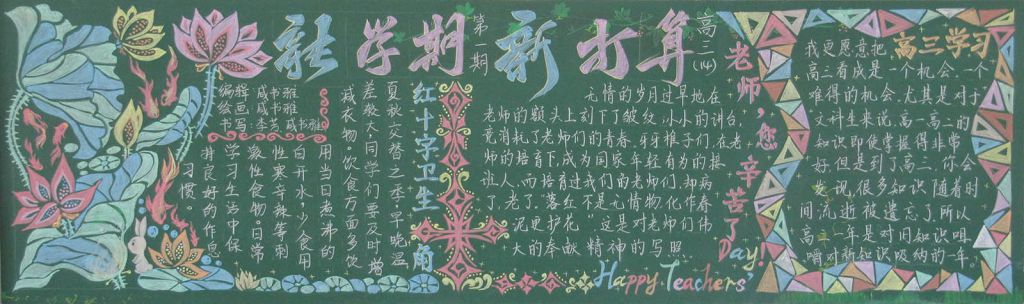 新学期新打算
第一期
高三(14)
编辑 戚书雅
绘画 戚书雅
书写:李芳 戚书雅
红十字卫生角
夏秋交替之季,早晚温
差较大同学们要及时增
减衣物,饮食方面多饮
用当日煮沸的
白开水,少食用
性寒辛辣等刺
激性食物日常
学习生活中保
持良好的作息
习惯。
无情的岁月过早地在
老师的额头上刻下了皱纹,小小的讲台,
竟消耗了老师们的青春,牙牙稚子们,在老
师的培育下,成为国家年轻有为的接
班人,而培育过我们的老师们,却病
了,老了."落红不是无情物,化作春
泥更护花"这是对老师们伟
大的奉献精神的写照
老师,您辛苦了
Happy Teachers' Day!
高三学习
我更愿意把
高三看成是一个机会,一个
难得的机会,尤其是对于
文科生来说,高一高二的
知识即使掌握得非常
好,但是到了高三,你会
发现很多知识随着时
间流逝被遗忘了,所以
高三一年是对旧知识咀
嚼对新知识吸纳的一年